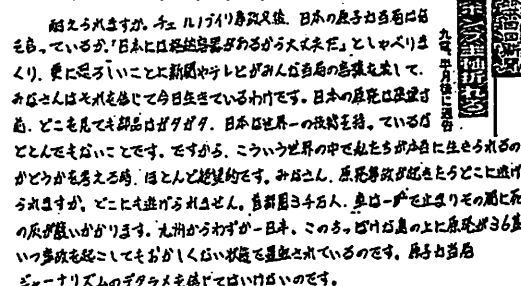 耐えられますか。チェルノブイリ事故以後、日本の原子力当局は何
を言っているか。「日本には格納容器があるから大丈夫だ」としゃべりま
くり、更に恐ろしいことに新聞やテレビがみんな当局の言葉を流して、
みなさんはそれを信じて今日生きているわけです。日本の原発は
どこを見ても部品はガタガタ、日本は世界一の技術を持っているな
どとんでもないことです。ですから、こういう世界の中で私たちが本当に生きられるの
かどうかを考える時、ほとんど絶望的です。みなさん、原発事故が起きたらどこに逃げ
られますか。どこにも逃げられません。首都圏3千万人、車は一発で止まりその間に死
の灰が襲いかかります。九州からわずか一日半。このちっぽけな島の上に原発が36基
いつ事故を起こしてもおかしくない状態で運転されているのです。原子力当局
ジャーナリズムのデタラメを信じてはいけないのです。
ポンプ主軸折れる
九電、半月後に通告